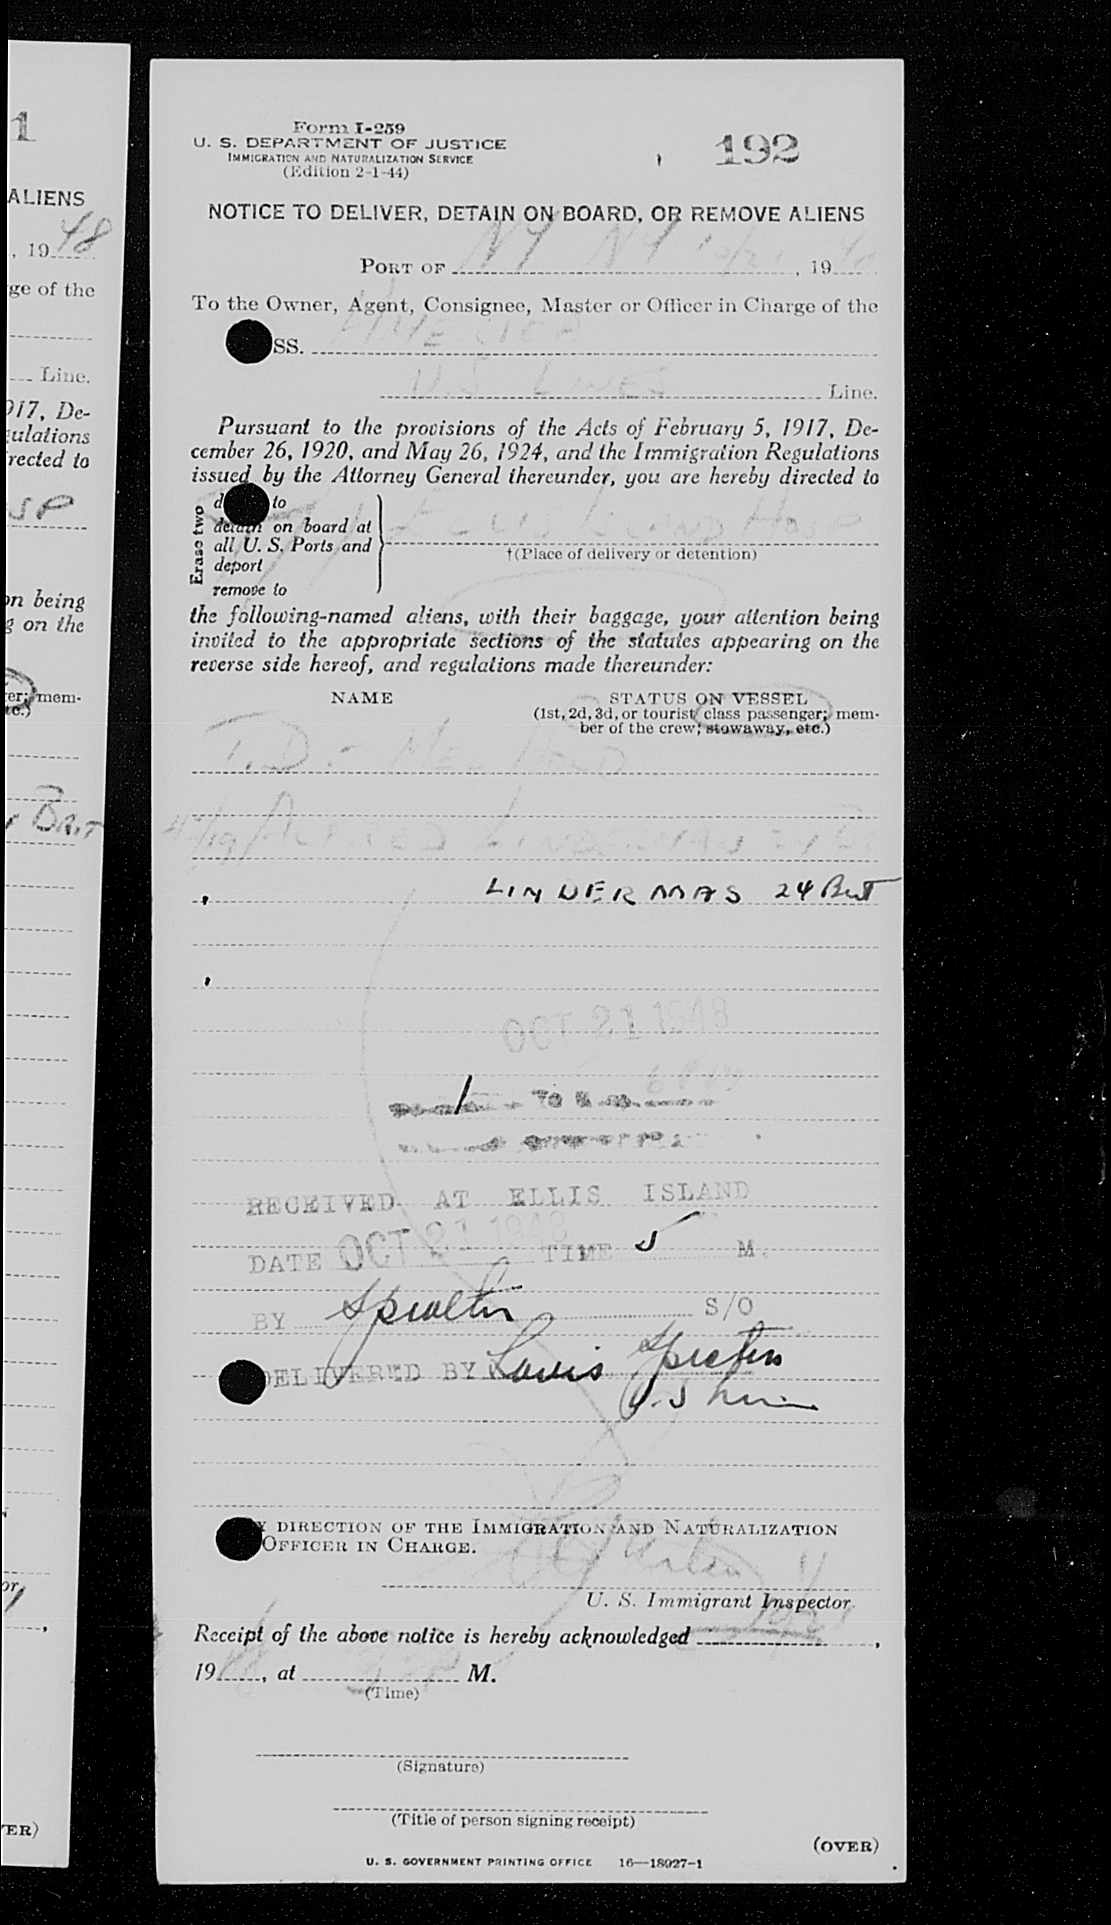 1
ALIENS
, 19 48
ge of the
Line.
917, De-
gulations
rected to
SP
on being
g on the
er; mem-
tc.)
BRIT
or
VER)
Form I-259
U. S. DEPARTMENT OF JUSTICE
IMMIGRATION AND NATURALIZATION SERVICE
(Edition 2-1-44)
192
NOTICE TO DELIVER, DETAIN ON BOARD, OR REMOVE ALIENS
PORT OF NY NY , 19
To the Owner, Agent, Consignee, Master or Officer in Charge of the
SS.
U.S LINES Line.
Pursuant to the provisions of the Acts of February 5, 1917, De-
cember 26, 1920, and May 26, 1924, and the Immigration Regulations
issued by the Attorney General thereunder, you are hereby directed to
Erase two
d to
detain on board at
all U. S. Ports and
deport
remove to
HOSP
†(Place of delivery or detention)
the following-named aliens, with their baggage, your attention being
invited to the appropriate sections of the statutes appearing on the
reverse side hereof, and regulations made thereunder:
NAME STATUS ON VESSEL
(1st, 2d, 3d, or tourist class passenger; mem-
ber of the crew; stowaway, etc.)
T.D. - MED HOLD
ALFRED
LINDERMAS 24 Brit
OCT 21 1948
1
RECEIVED AT ELLIS ISLAND
DATE OCT 21 1948 TIME 5 M.
BY S/O
DELIVERED BY Louis
BY DIRECTION OF THE IMMIGRATION AND NATURALIZATION
OFFICER IN CHARGE.
U. S. Immigrant Inspector.
Receipt of the above notice is hereby acknowledged ,
19 , at M.
(Time)
(Signature)
(Title of person signing receipt)
(OVER)
U. S. GOVERNMENT PRINTING OFFICE 16—18927-1